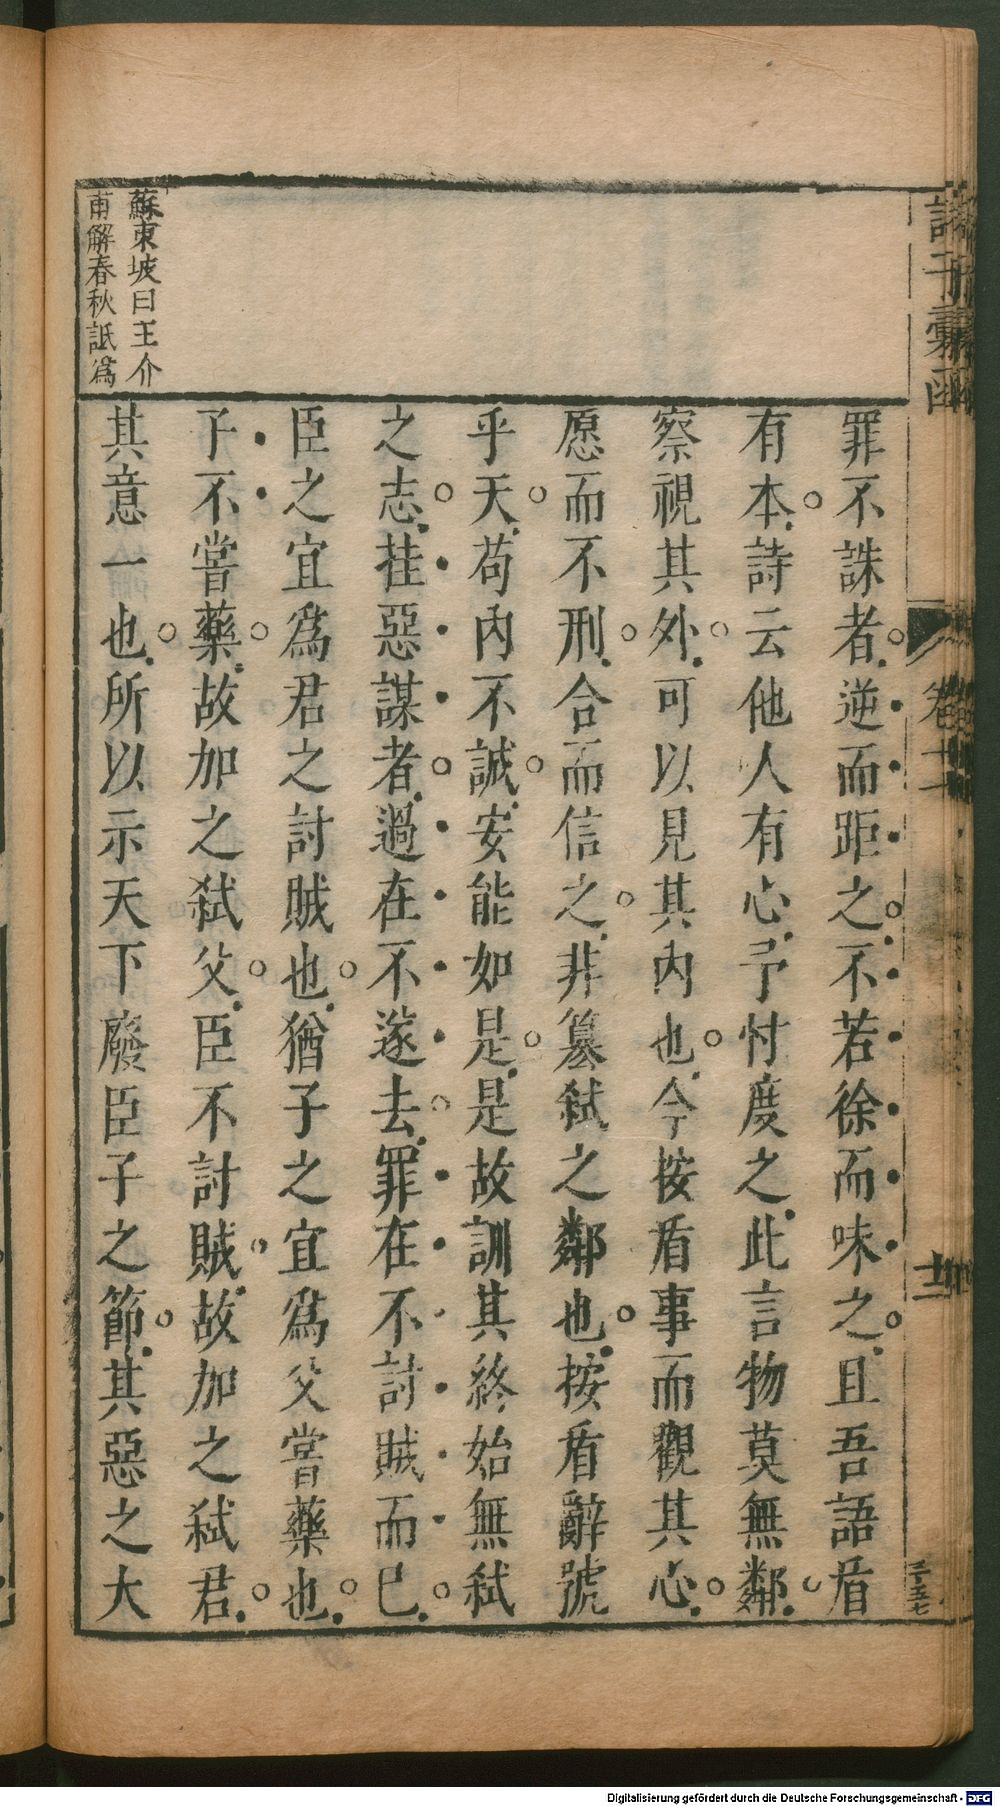 諸子彙函
卷十一
十二
罪不誅者逆而距之不若徐而味之且吾語盾
有本詩云他人有心予忖度之此言物莫無鄰
察視其外可以見其內也今按盾事而觀其心
愿而不刑合而信之非篡弒之鄰也按盾辭號
乎天苟內不誠安能如是是故訓其終始無弒
之志挂惡謀者過在不遂去罪在不討賊而已
臣之宜爲君之討賊也猶子之宜爲父嘗藥也
子不嘗藥故加之弒父臣不討賊故加之弒君
其意一也所以示天下廢臣子之節其惡之大
蘇東坡曰王介
甫解春秋詆爲
Digitalisierung gefördert durch die Deutsche Forschungsgemeinschaft - DFG